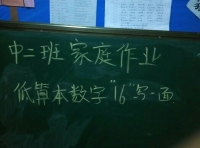 中二班家庭作业
低算本数字"16"写一面